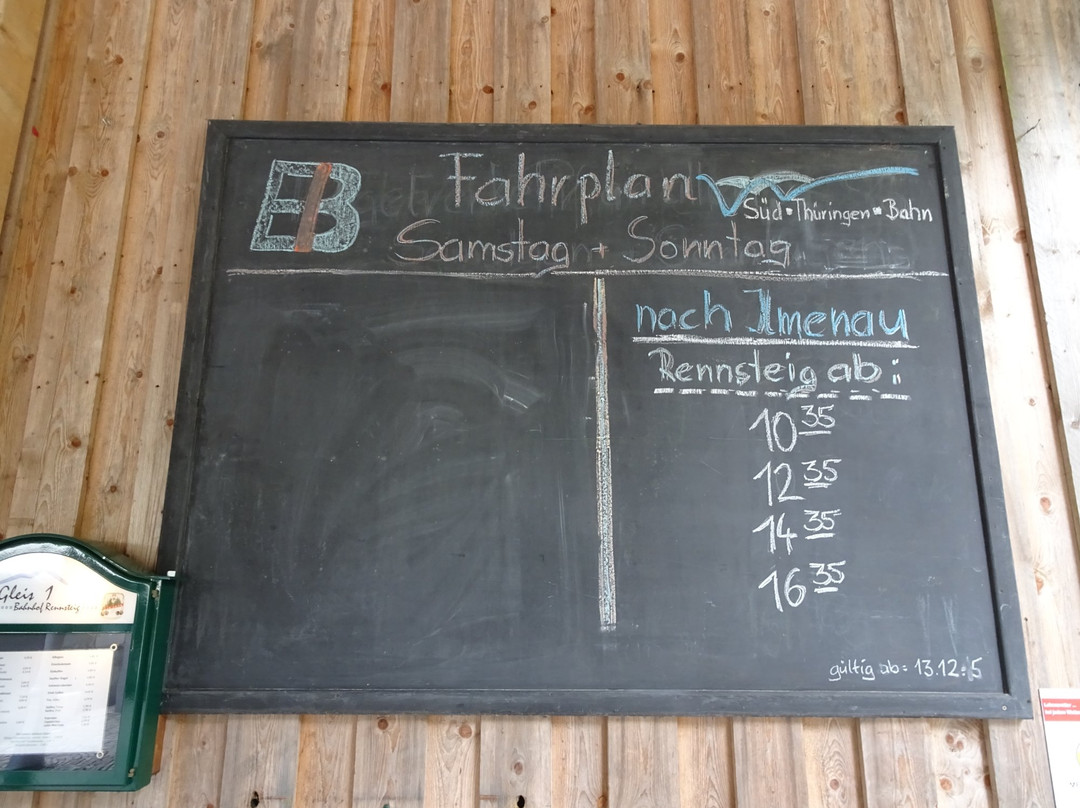 EB Fahrplan
Süd-Thüringen-Bahn
Samstag + Sonntag
nach Ilmenau
Rennsteig ab:
10 35
12 35
14 35
16 35
gültig ab: 13.12.15
Gleis 1
Bahnhof Rennsteig